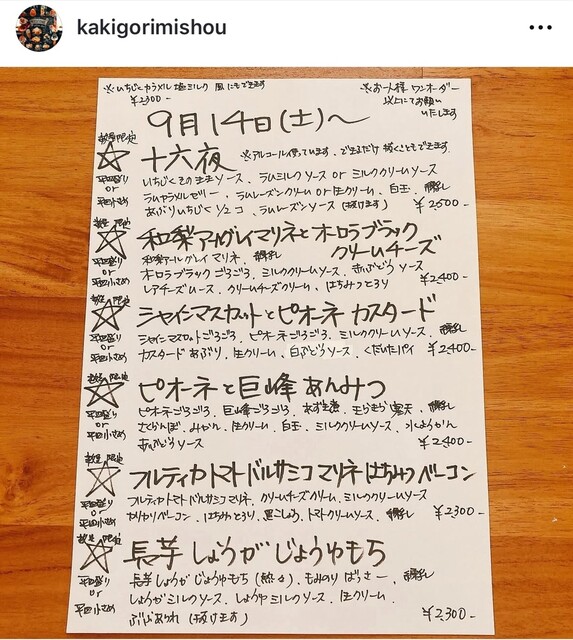 kakigorimishou
※いちじくカラメル塩ミルク 風にもできます
¥2300-
※お一人様 ワンオーダー
以上にてお願い
いたします
9月14日(土)〜
数量限定
十六夜 ※アルコール使っています。できるだけ抜くこともできます
平皿盛り
or
平皿小さめ
いちじくそのままソース、ラムミルクソース or ミルククリームソース
ラムカラメルゼリー、ラムレーズンクリーム or 生クリーム、白玉、練乳
あぶりいちじく 1/2コ、ラムレーズンソース(抜けます) ¥2500-
数量限定
和梨アールグレイマリネとオーロラブラック
クリームチーズ
平皿盛り
or
平皿小さめ
和梨アールグレイマリネ、練乳
オーロラブラックごろごろ、ミルククリームソース、赤ぶどうソース
レアチーズソース、クリームチーズクリーム、はちみつとろり ¥2400-
数量限定
シャインマスカットとピオーネ カスタード
平皿盛り
or
平皿小さめ
シャインマスカットごろごろ、ピオーネごろごろ、ミルククリームソース、練乳
カスタードあぶり、生クリーム、白ぶどうソース、くだいたパイ ¥2400-
数量限定
ピオーネと巨峰あんみつ
平皿盛り
or
平皿小さめ
ピオーネごろごろ、巨峰ごろごろ、あずき煮、きらきら寒天、練乳
さくらんぼ、みかん、生クリーム、白玉、ミルククリームソース、水ようかん
赤ぶどうソース ¥2400-
数量限定
フルティカトマトバルサミコマリネはちみつベーコン
平皿盛り
or
平皿小さめ
フルティカトマトバルサミコマリネ、クリームチーズクリーム、ミルククリームソース
カリカリベーコン、はちみつとろり、黒こしょう、トマトクリームソース、練乳 ¥2300-
数量限定
長芋しょうがじょうゆもち
平皿盛り
or
平皿小さめ
長芋しょうがじょうゆもち(熱々)、もみのりばっさー、練乳
しょうがミルクソース、しょうゆミルクソース、生クリーム
ぶぶあられ(抜けます) ¥2300-